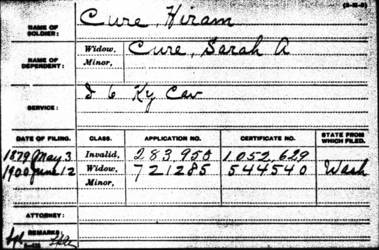 NAME OF SOLDIER: Cure, Hiram
NAME OF DEPENDENT: Widow, Cure, Sarah A
Minor,
SERVICE: I 6 Ky Cav
DATE OF FILING. CLASS. APPLICATION NO. CERTIFICATE NO. STATE FROM WHICH FILED.
1879 May 3 Invalid, 283,950 1,052,629
1900 June 12 Widow, 721285 544540 Wash
Minor,
ATTORNEY:
REMARKS: